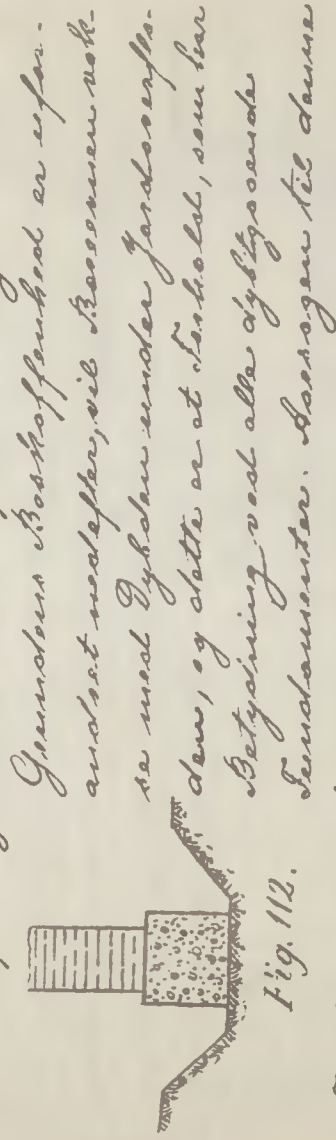 Grundens Beskaffenhed er ufor-
andret nedefter, vil Bæreevnen vok-
se med Dybden under Jordoverfla-
den, og dette er et Forhold, som har
Betydning ved alle dybtgaaende
Fundamenter. Aarsagen til denne
Fig. 112.